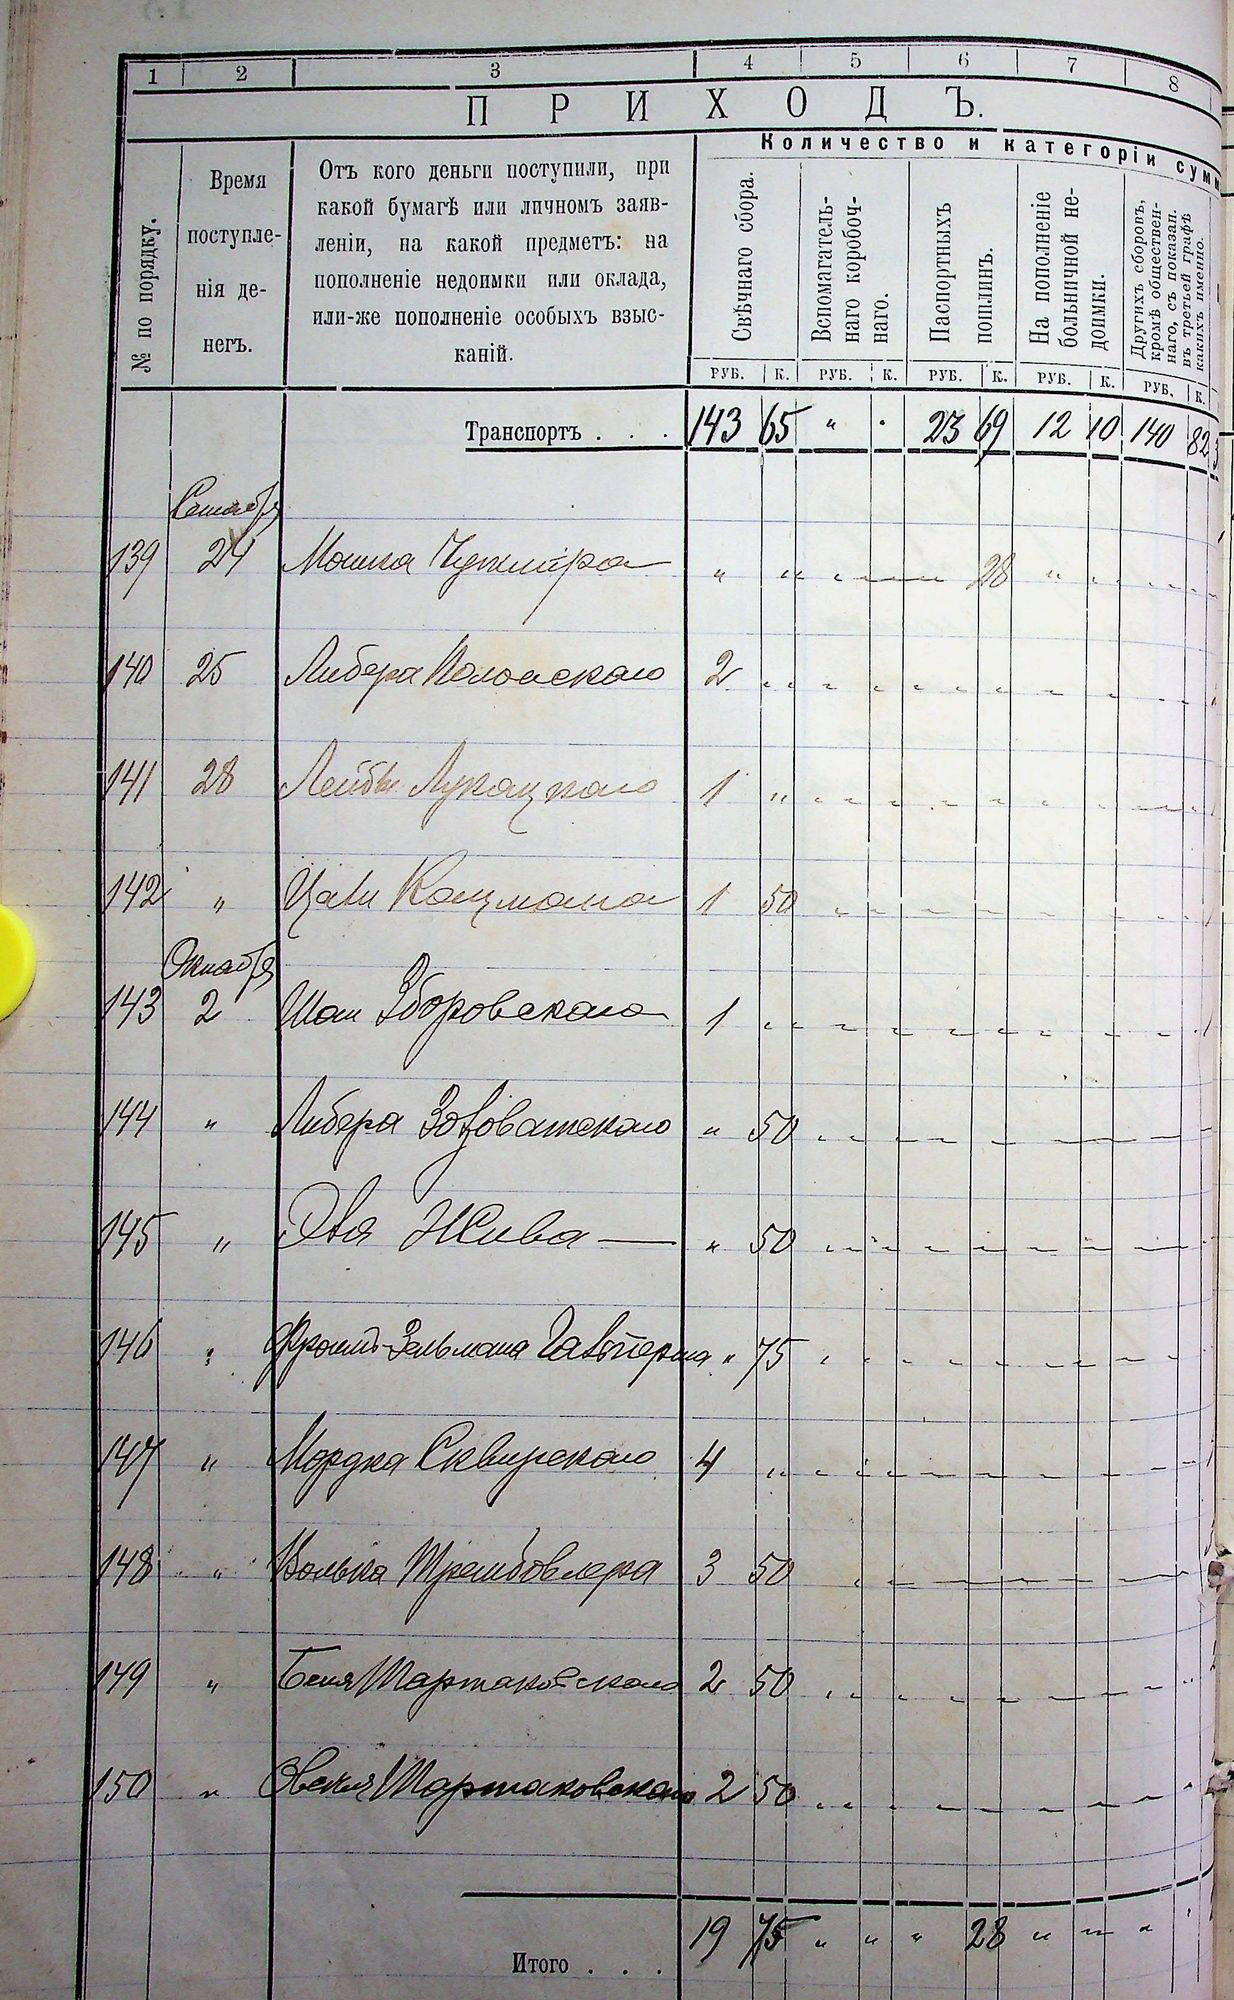 1 2 3 4 5 6 7 8
ПРИХОДЪ.
Количество и категоріи сумм
№ по порядку.
Время поступленія денегъ.
Отъ кого деньги поступили, при
какой бумагѣ или личномъ заяв-
леніи, на какой предметъ: на
пополненіе недоимки или оклада,
или-же пополненіе особыхъ взыс-
каній.
Свѣчнаго сбора.
Вспомагатель-
наго коробоч-
наго.
Паспортныхъ
пошлинъ.
На пополненіе
больничной не-
доимки.
Другихъ сборовъ,
кромѣ обществен-
наго, съ показан.
въ третьей графѣ
какихъ именно.
РУБ. К. РУБ. К. РУБ. К. РУБ. К. РУБ. К.
Транспортъ . . . 143 65 " " 23 69 12 10 140 82
Сентябр
139 24 Мошка " " 28 "
140 25 Либера 2 "
141 28 Лейбы Лукацкаго 1 "
142 " Кацмана 1 50
Октабря
143 2 Шаи Зборовскаго 1 "
144 " Либера " 50
145 " Жива — " 50
146 " Зельмана " 75
147 " Мордка Сквирскаго 4 "
148 " Волька Трембовлера 3 50
149 " Беня Шартаковскаго 2 50
150 " Овсия Шартаковскаго 2 50
Итого . . . 19 75 " " " 28 " " "